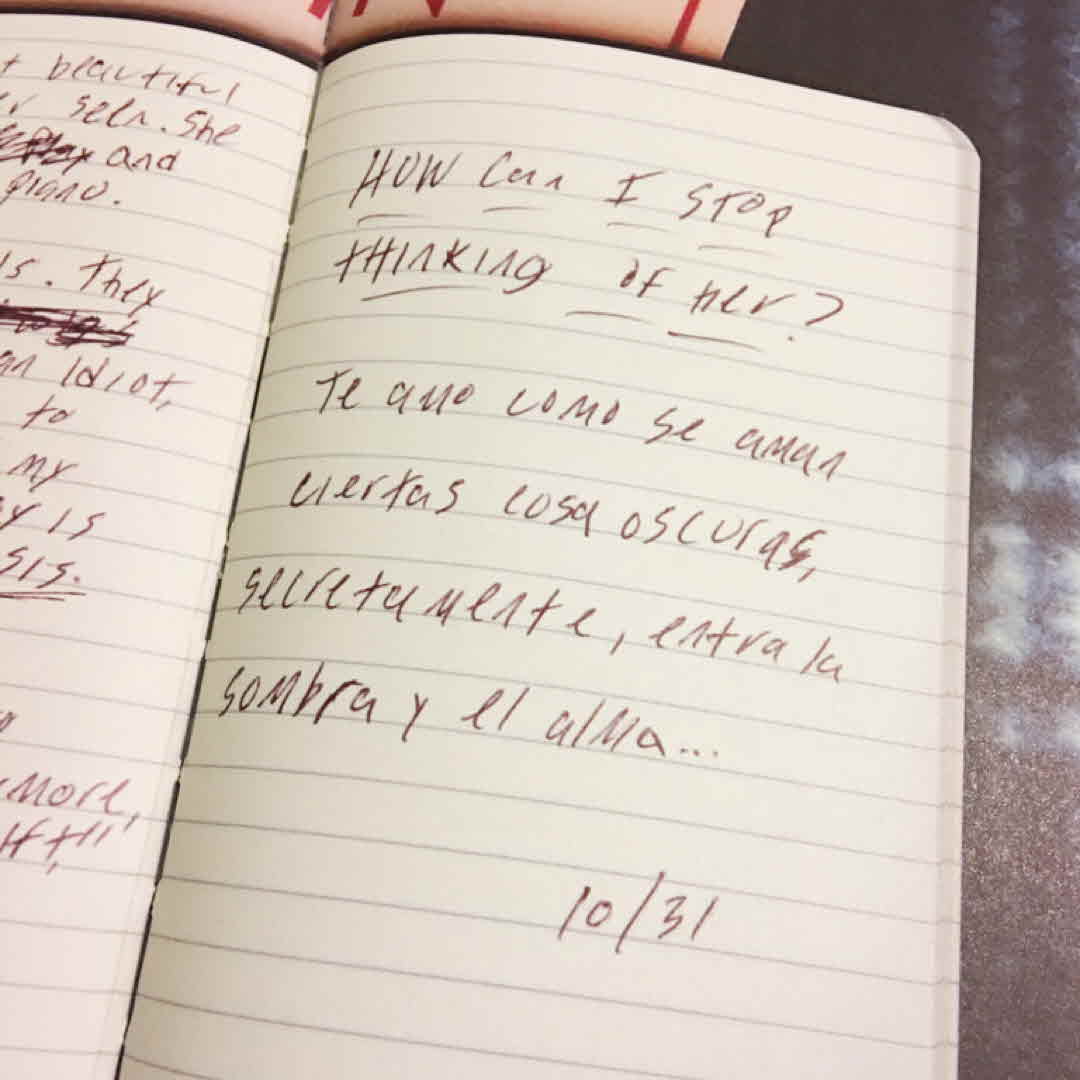 t beautiful
seen. She
and
piano.
is. They
an idiot,
to
my
y is
sis.
more,
HOW Can I STOP
tHINKING of Her?
Te amo como se aman
ciertas cosa oscuras,
secretamente, entra la
sombra y el alma...
10/31